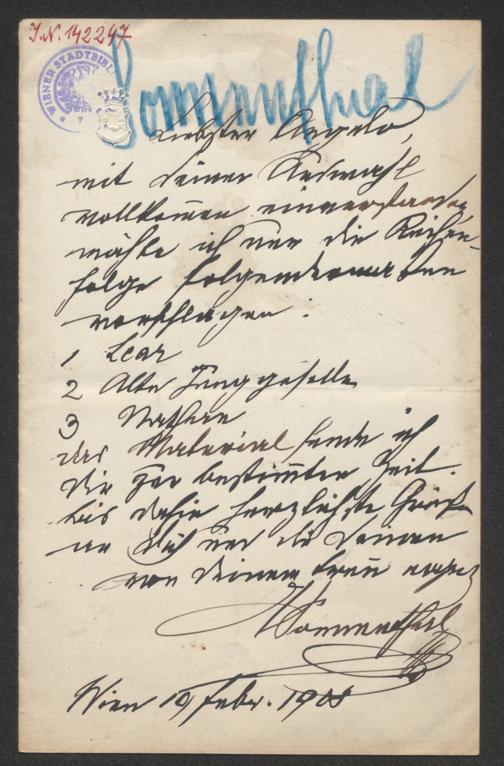 J.N. 142247
WIENER STADTBIBL
Sonnenthal
Liebster Angelo,
mit Deiner Auswahl
vollkommen einverstanden,
möchte ich nur die Reihen-
folge folgendermaßen
vorschlagen:
1 Lear
2 Alte Junggeselle
3 Nathan
das Material sende ich
Dir zur bestimmten Zeit.
bis dahin herzlichste Grüße
an Dich und die Deinen
von Deinem treu
Sonnenthal
Wien 19 Febr. 1908